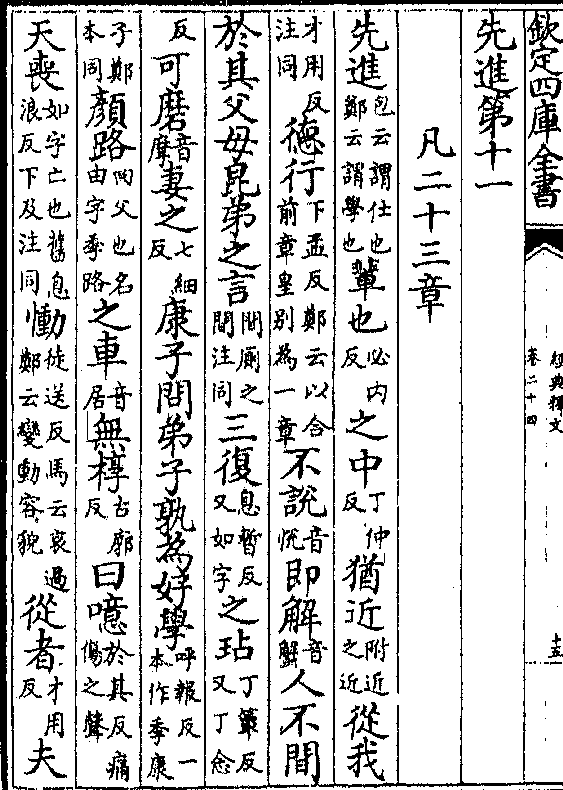 欽定四庫全書
經典釋文
卷二十四
十五
先進第十一
凡二十三章
先進包云謂仕也鄭云謂學也輩也必内反之中丁仲反猶近附近之近從我
才用反注同德行下孟反鄭云以合前章皇别為一章不說音悅即解音蟹人不間
於其父母昆弟之言間厠之間注同三復息暫反又如字之玷丁簟反又丁念
反可磨音摩妻之七細反康子問弟子孰為好學呼報反一本作季康
子鄭本同顏路回父也名由字季路之車音居無椁古廓反曰噫於其反痛傷之聲
天喪如字亡也舊息浪反下及注同慟徒送反馬云哀過鄭云變動容貌從者才用反夫